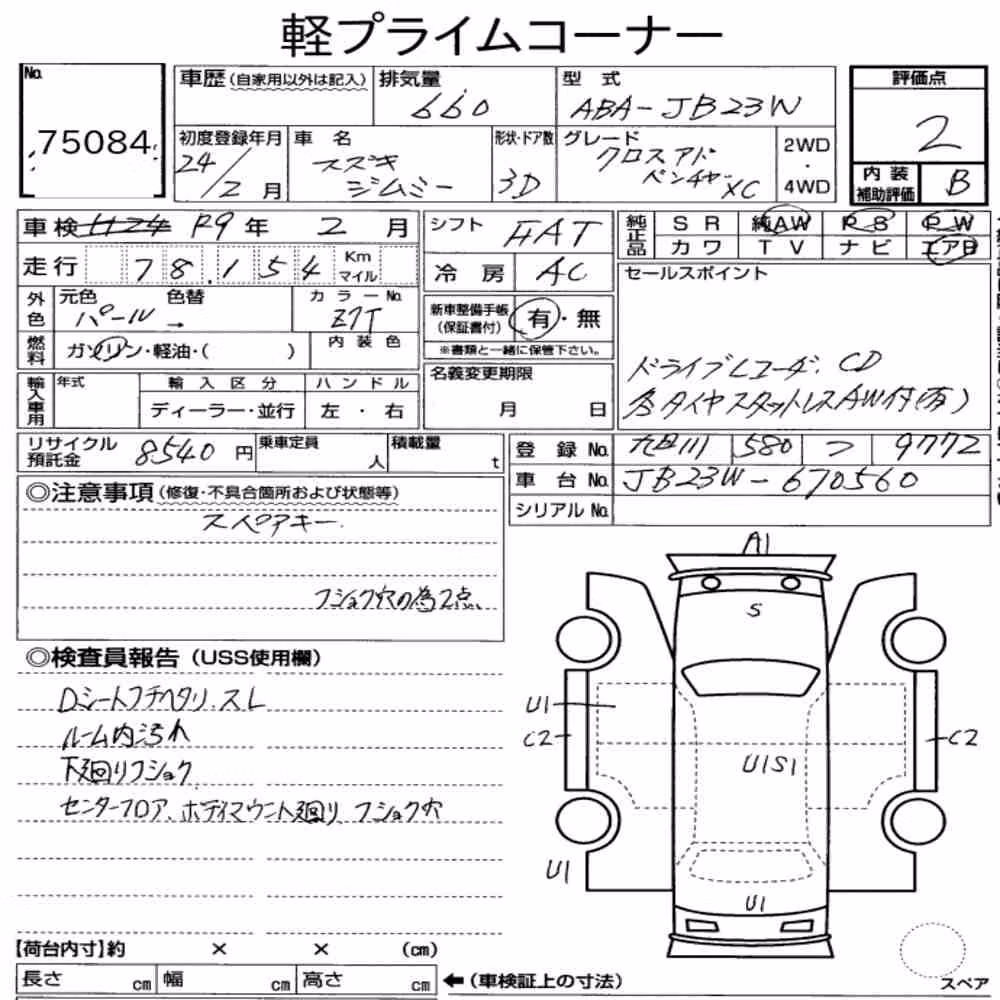 軽プライムコーナー
No. 75084
車歴(自家用以外は記入)
排気量 660
型式 ABA-JB23W
評価点 2
初度登録年月 24/2月
車名 スズキ ジムニー
形状・ドア数 3D
グレード クロスアド ベンチャー XC
2WD・4WD
内装補助評価 B
車検 H24 R9年 2月
シフト FAT
純正品 SR 純AW PS PW
カワ TV ナビ エアB
走行 78,154 Km マイル
冷房 AC
セールスポイント
外色 元色 パール 色替 →
カラーNo. Z7T
新車整備手帳(保証書付) 有・無
※書類と一緒に保管下さい。
燃料 ガソリン・軽油・( )
内装色
ドライブレコーダ、CD
冬タイヤスタットレスAW付(有)
輸入車用 年式
輸入区分 ディーラー・並行
ハンドル 左・右
名義変更期限 月 日
リサイクル預託金 8540円
乗車定員 人
積載量 t
登録No. 580 つ 9772
車台No. JB23W-670560
シリアルNo.
◎注意事項(修復・不具合箇所および状態等)
スペアキー.
フショク穴の為2点、
◎検査員報告(USS使用欄)
Dシートフチヘタリ.スレ
ルーム内汚れ
下廻りフショク
センターフロア、ボディマウント廻り、フショク穴
A1
S
U1
C2
C2
U1S1
U1
U1
【荷台内寸】約 × × (cm)
長さ cm 幅 cm 高さ cm ←(車検証上の寸法)
スペア